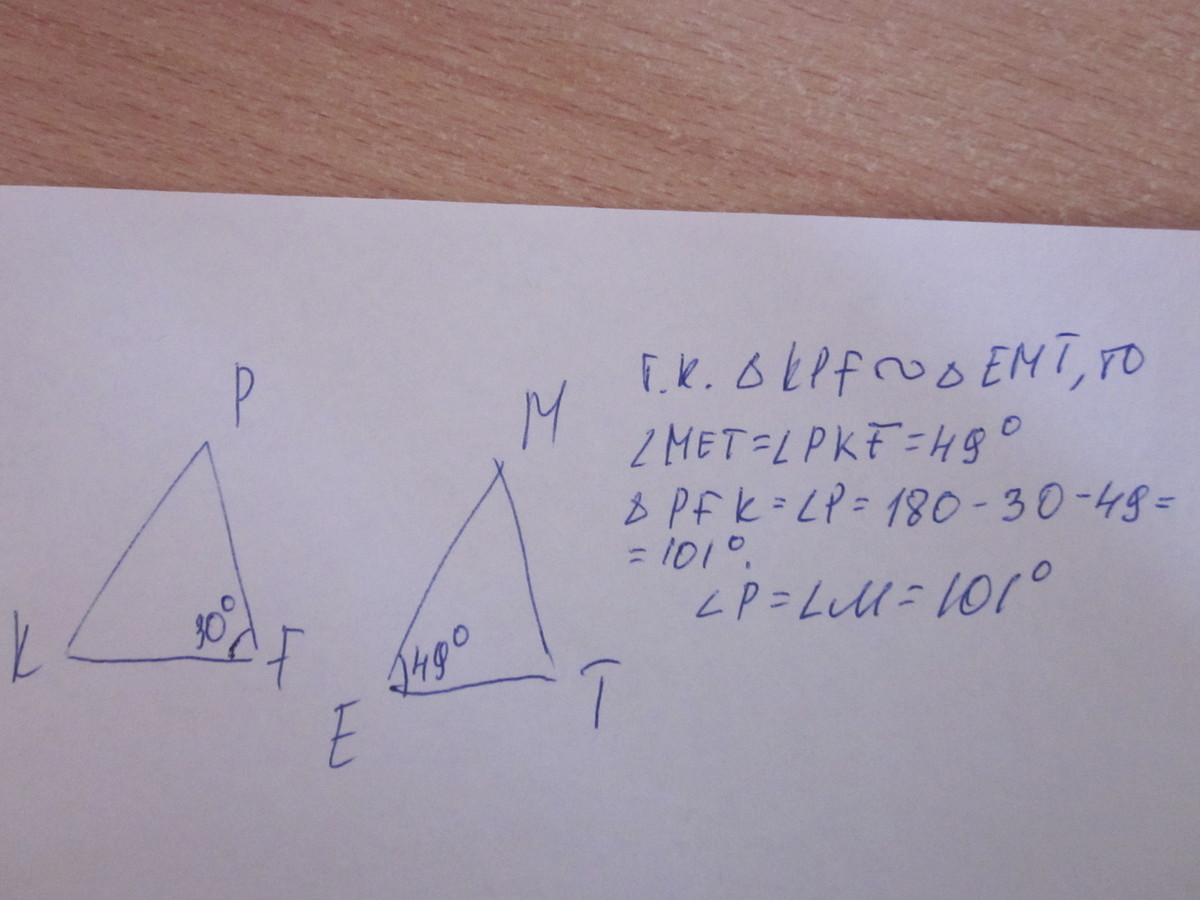 P
M
K
30°
F
49°
E
T
т.к. Δ KPF ∾ Δ EMT, то
∠MET=∠PKF=49°
Δ PFK=∠P= 180-30-49=
=101°.
∠P=∠M=101°